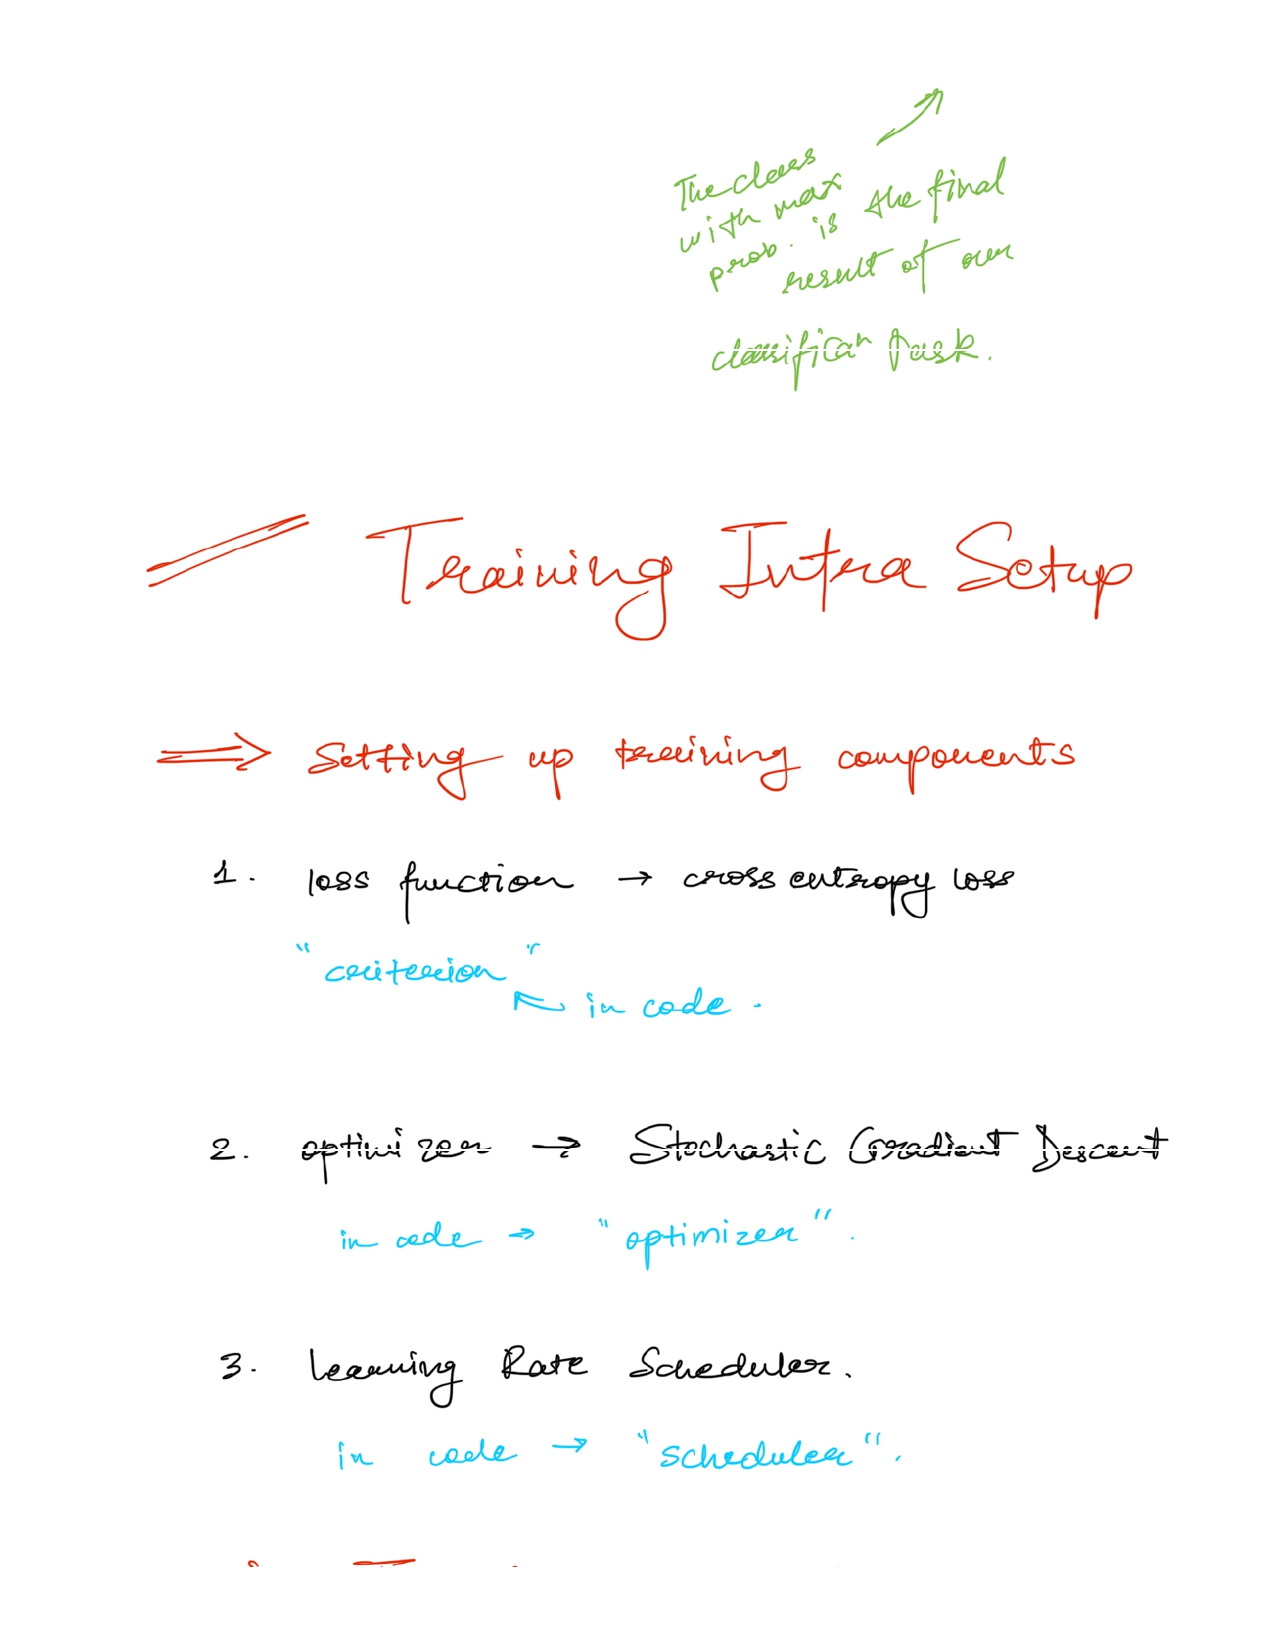 The class
with max
prob. is the final
result of our
classificaⁿ task.
Training Infra Setup
⇒ Setting up training components
1. loss function → cross entropy loss
"criterion"
↖ in code.
2. optimizer → Stochastic Gradient Descent
in code → "optimizer".
3. Learning Rate Scheduler.
in code → "scheduler".